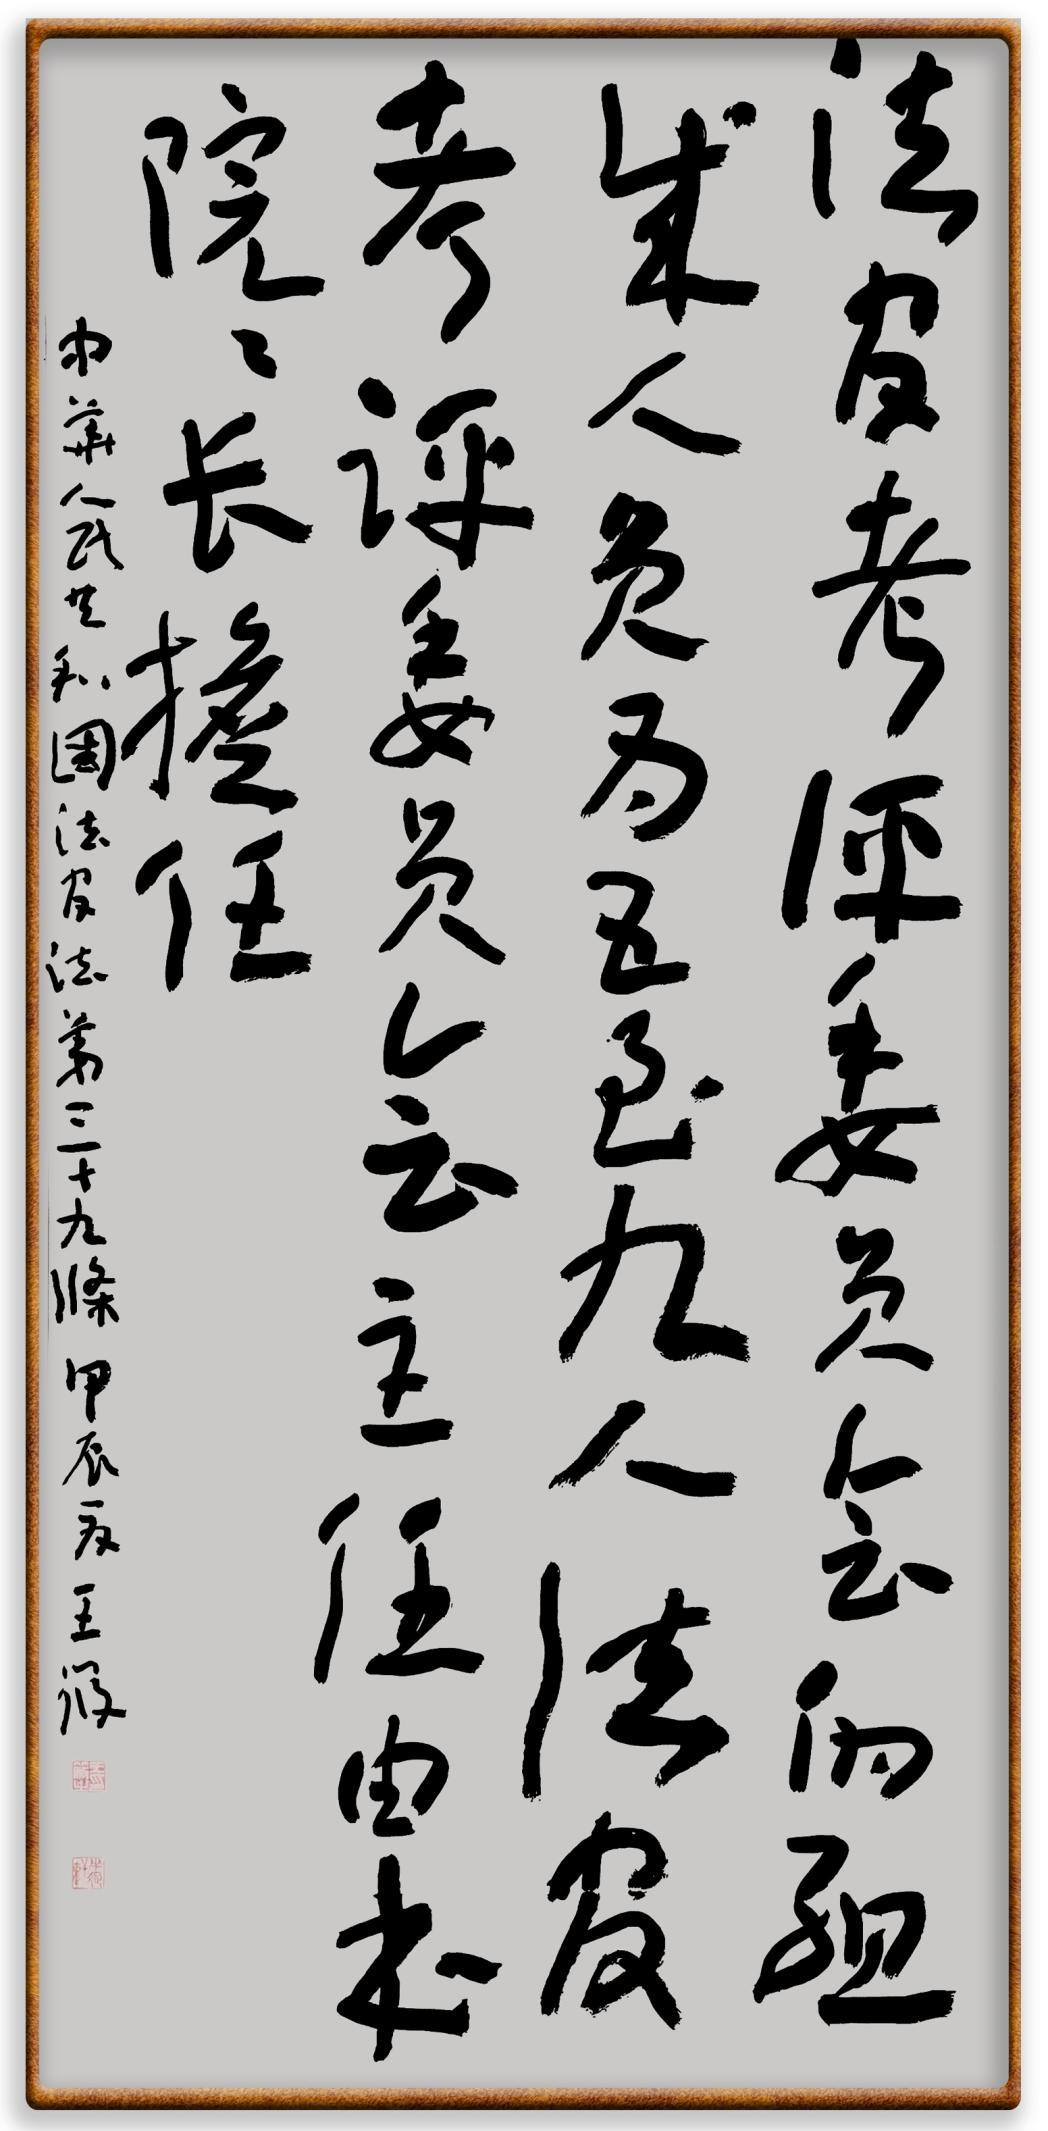 法官考评委员会的组
成人员为五至九人法官
考评委员会主任由本
院院长担任
中华人民共和国法官法第三十九條甲辰夏王